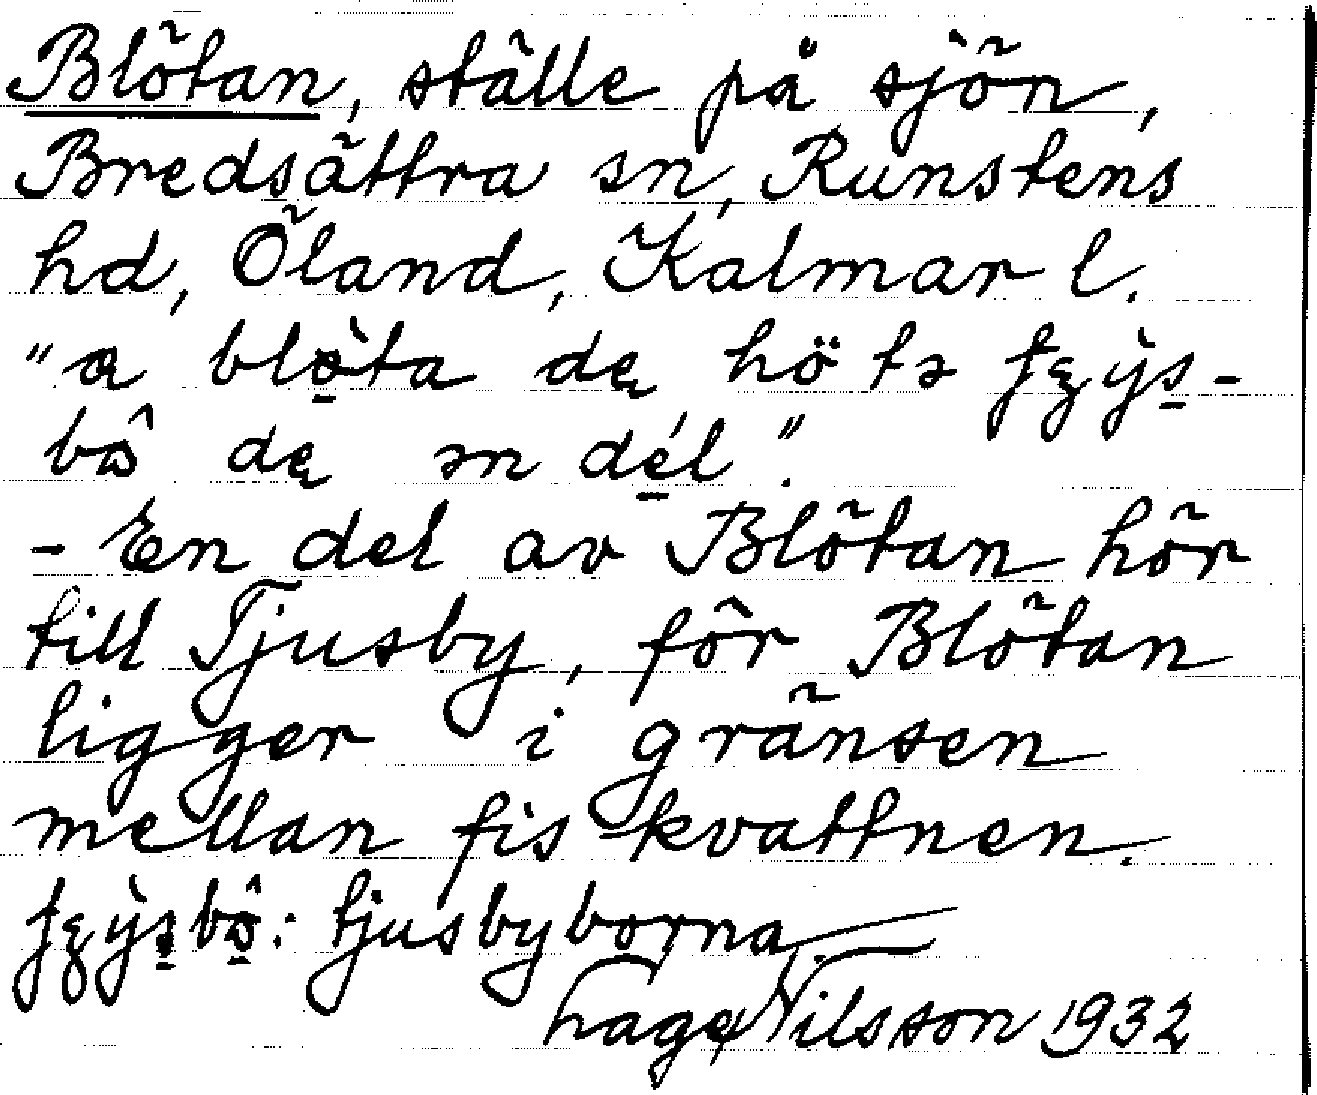 Blötan, ställe på sjön,
Bredsättra sn, Runstens
hd, Öland, Kalmar l.
"a blo̠̍ta dę hö tə
bô dę ən dé̠l".
- En del av Blötan hör
till Tjusby, för Blötan
ligger i gränsen
mellan fis-kvattnen.
tjusbyborna.
Hage Nilsson 1932